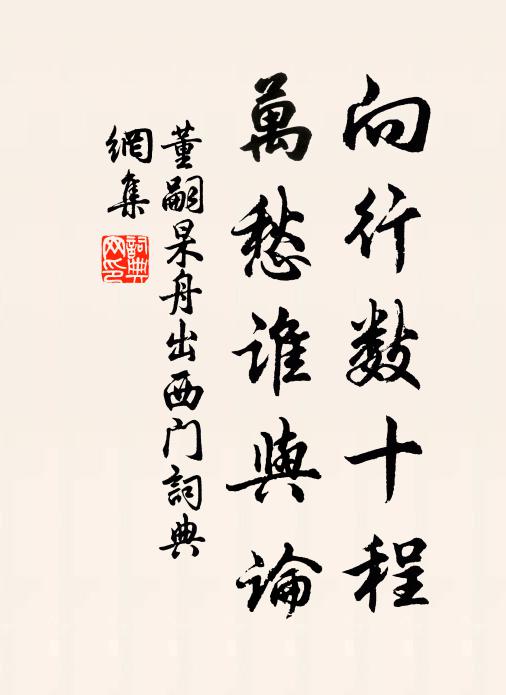 向行数十程
萬愁誰與論
董嗣杲舟出西门詞典
網集
詞典
网印